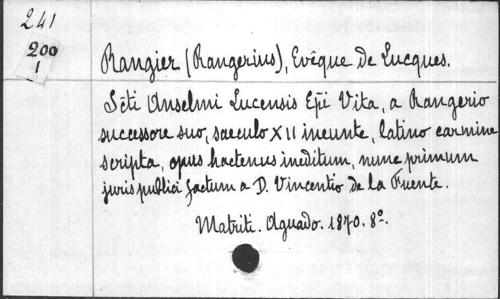 241
200
1
Rangier (Rangerius), Evêque de Lucques.
Scti Anselmi Lucensis Epi Vita, a Rangerio
successore suo, saeculo XII ineunte, latino carmine
scripta, opus hactenus ineditum, nunc primum
juris publici factum a D. Vincentio de la Fuente.
Matriti. Aguado. 1870. 8º.